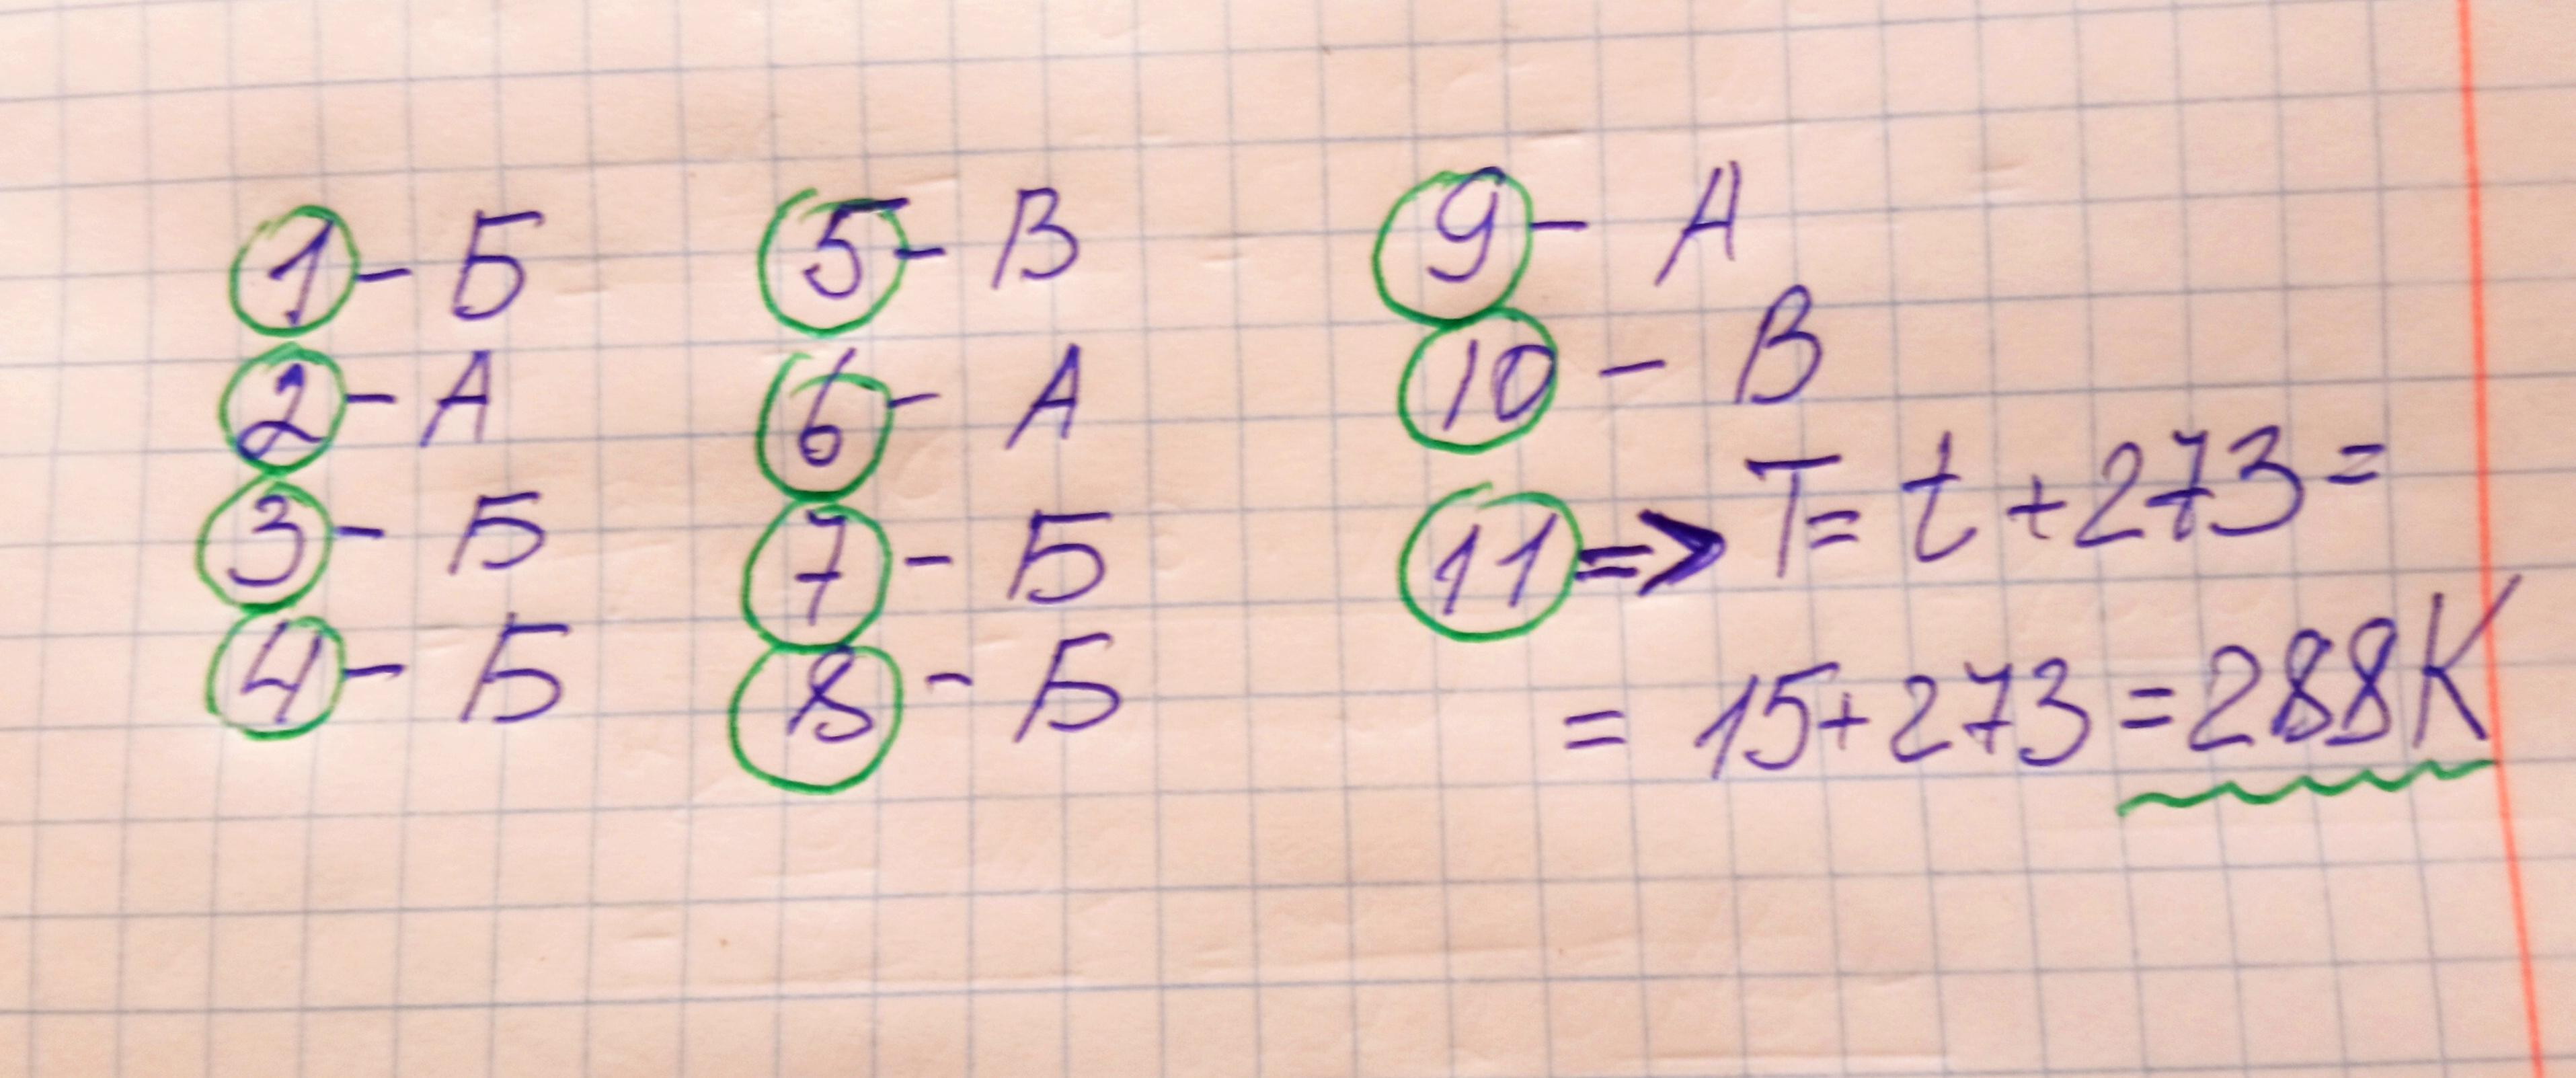 1 - Б
2 - А
3 - Б
4 - Б
5 - В
6 - А
7 - Б
8 - Б
9 - А
10 - В
11 => T = t + 273 =
= 15 + 273 = 288K